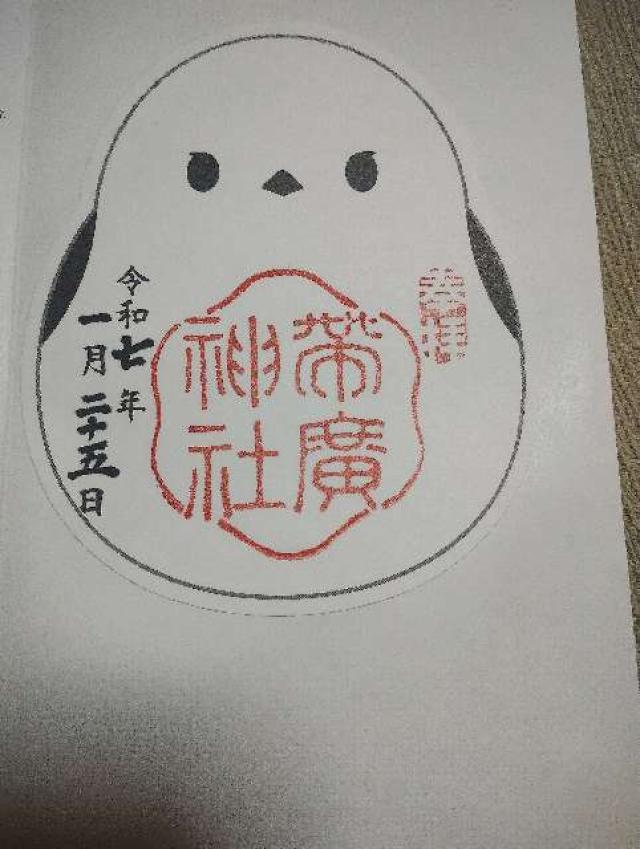 奉拝
帯廣
神社
令和七年
一月二十五日